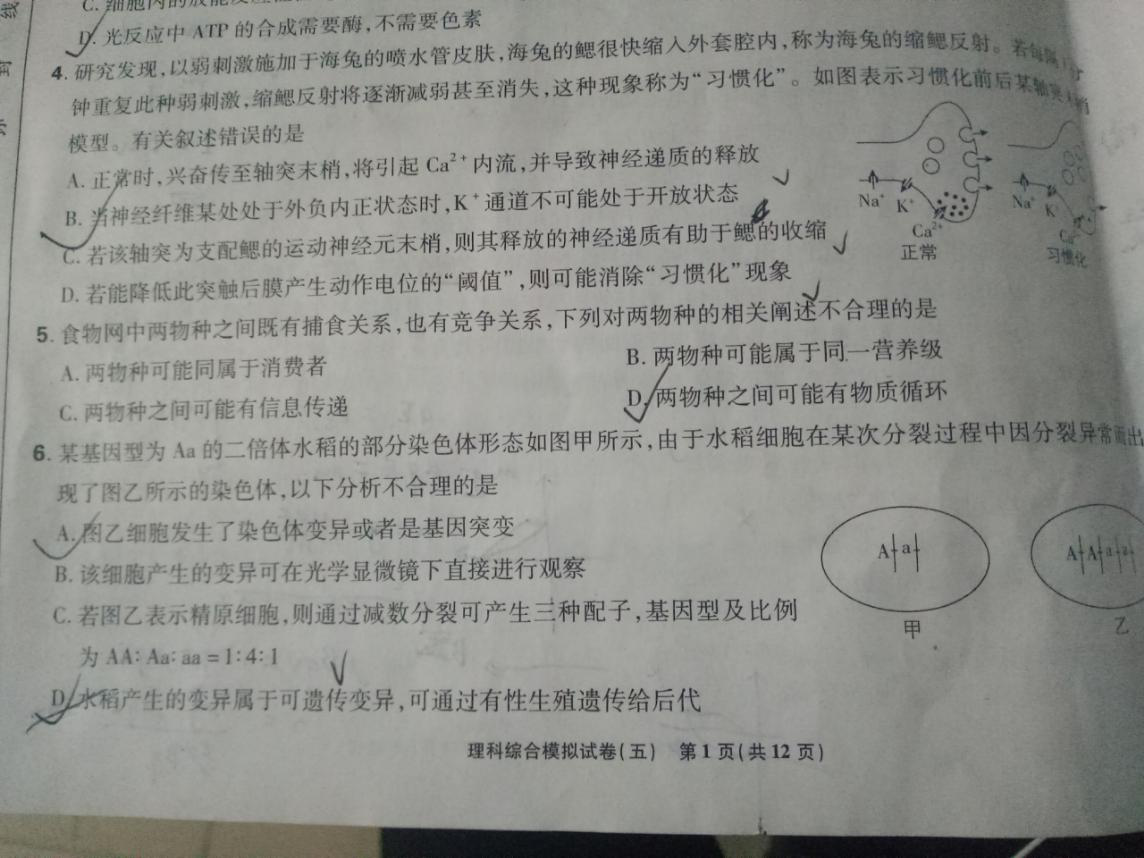 线
封
C. 细胞内的放能反应
D. 光反应中 ATP 的合成需要酶,不需要色素
4. 研究发现,以弱刺激施加于海兔的喷水管皮肤,海兔的鳃很快缩入外套腔内,称为海兔的缩鳃反射。若每隔1分
钟重复此种弱刺激,缩鳃反射将逐渐减弱甚至消失,这种现象称为“习惯化”。如图表示习惯化前后某轴突末梢
模型。有关叙述错误的是
A. 正常时,兴奋传至轴突末梢,将引起 Ca²⁺ 内流,并导致神经递质的释放
B. 当神经纤维某处处于外负内正状态时,K⁺ 通道不可能处于开放状态
C. 若该轴突为支配鳃的运动神经元末梢,则其释放的神经递质有助于鳃的收缩
D. 若能降低此突触后膜产生动作电位的“阈值”,则可能消除“习惯化”现象
Na⁺ K⁺ Ca²⁺
正常
Na⁺ K⁺ Ca
习惯化
5. 食物网中两物种之间既有捕食关系,也有竞争关系,下列对两物种的相关阐述不合理的是
A. 两物种可能同属于消费者
B. 两物种可能属于同一营养级
C. 两物种之间可能有信息传递
D. 两物种之间可能有物质循环
6. 某基因型为 Aa 的二倍体水稻的部分染色体形态如图甲所示,由于水稻细胞在某次分裂过程中因分裂异常而出
现了图乙所示的染色体,以下分析不合理的是
A. 图乙细胞发生了染色体变异或者是基因突变
B. 该细胞产生的变异可在光学显微镜下直接进行观察
C. 若图乙表示精原细胞,则通过减数分裂可产生三种配子,基因型及比例
为 AA∶Aa∶aa = 1∶4∶1
D. 水稻产生的变异属于可遗传变异,可通过有性生殖遗传给后代
A a
甲
A A a a
乙
理科综合模拟试卷(五) 第 1 页(共 12 页)